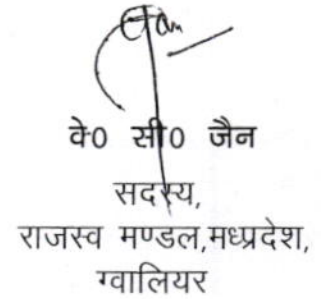 वे0 सी0 जैन
सदस्य,
राजस्व मण्डल,मध्प्रदेश,
ग्वालियर